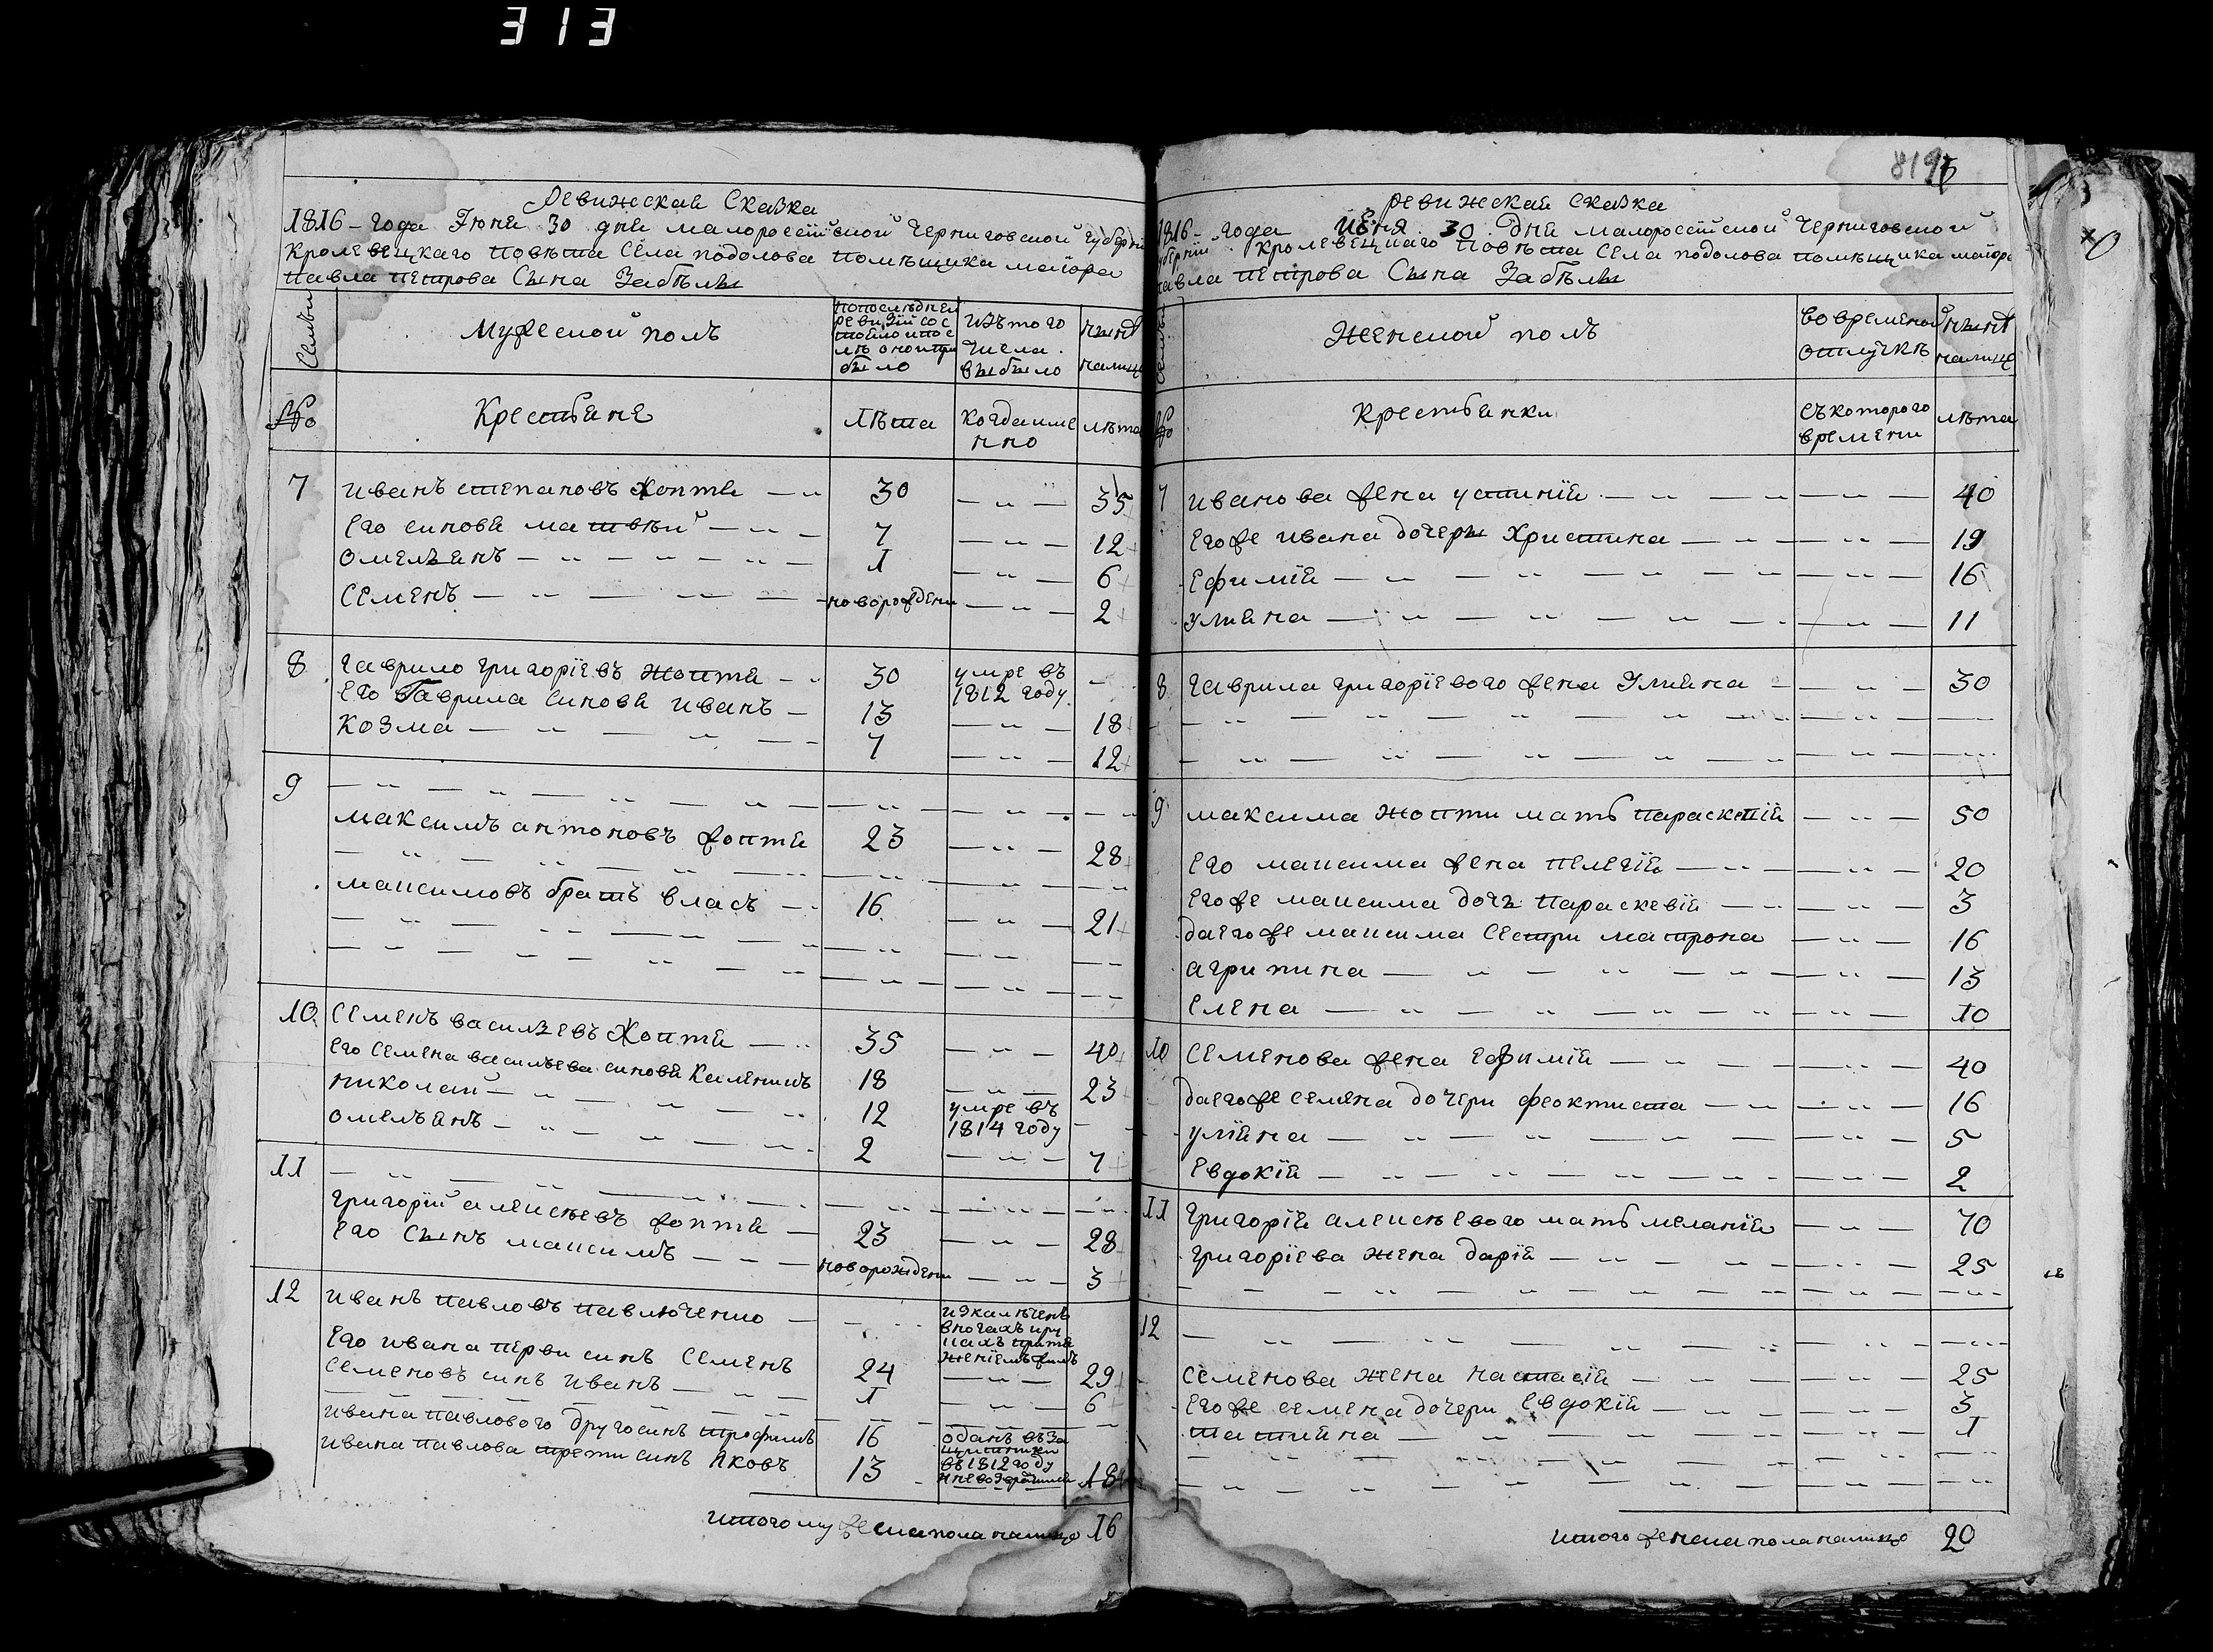 313
Ревижская Сказка
1816 - года Іюня 30 дня малоросеійской Черниговской губерніи
Кролевецкаго повѣта Села подолова помѣщика маіора
Павла петрова Сына Забѣлы
Семьи
Мужеской полъ
по последней
ревизіи сос
тояло и пос
лѣ оной при
было
Изъ того
числа
выбыло
нынѣ
налицо
№
Крестьяне
Лѣта
когда име
нно
лѣта
7 иванъ степановъ Жоптя — " 30 — " — 35
его синовя матвѣй — " — 7 — " — 12
омельянъ — " — " — " — 1 — " — 6
Семенъ — " — " — новорожденн — " — 2
8 гаврило григоріевъ жоптя — " 30 умре въ
1812 году —
его Гаврила синовя иванъ — 13 — " — 18
козма — " — " — 7 — " — 12
9 — " — " — " — " — " — " — " — "
максимъ антоновъ жоптя 23 — " — 28
— " — " — " — " — " — "
максимовъ братъ власъ — " 16 — " — 21
— " — " — " — " — " — " — —
— " — " — " — " — " — " — —
10 Семенъ васильевъ Жоптя — " 35 — " — 40
его Семена васильева синовя Калениκъ 18 — " — 23
николай — " — " — " 12 умре въ
1814 году — "
омельянъ — " — " — " 2 — " — 7
11 — " — " — " — " — " — " — " —
григорій алексѣевъ жоптя — 23 — " — 28
его Сынъ максимъ — — новорожденн — " — 3
12 иванъ павловъ павлюченко — — "
изкалѣченъ
в ногахъ и ру
кахъ
его ивана перви синъ Семенъ 24 — " — 29
Семеновъ синъ иванъ — " — 1 — " — 6
ивана павлового друго синъ трофимъ 16 оданъ въ
въ 1812 году —
ивана павлова трети синъ яковъ 13 18
итого мужеска пола налицо 16
819
Ревижская Сказка
1816 - года июня 30 дня малоросеійской Черниговской
губерніи Кролевецкаго повѣта Села подолова помѣщика маіора
павла петрова Сына Забѣлы
Женской полъ
во временной
отлучкѣ
нынѣ
налицо
№
Крестьянки
съ которого
времени
лѣта
7 иванова жена устинія — " — " — " — 40
его же ивана дочеры христина — " — " — 19
ефимія — " — " — " — " — " — 16
уляна — " — " — " — " — " — 11
8 гаврила григоріевого жена Уляна — — " — 30
— " — " — " — " — " — " — —
— " — " — " — " — " — " — "
9 максима жопти мать параскевія — " — 50
его максима жена пелегія — " — — " — 20
его же максима дочь параскевія — " — " — 3
да его же максима Сестри матрона — " — 16
агрипина — " — " — " — " — 13
елена — " — " — " — " — " — 10
10 Семенова жена ефимія — " — — " — 40
да его же семена дочери феоктиста — " — " — 16
уліяна — " — " — " — — " — 5
евдокія — " — " — " — " — — " — 2
11 Григорія алексѣевого мать меланія — " — 70
григоріева жена дарія — " — " — — " — 25
— " — " — " — " — " — " —
12 — " — " — " — " — " — "
Семенова жена настасія — " — — " — 25
его же семена дочери евдокія — " — — " — 3
татияна — " — " — " — " — 1
— " — " — " — " — " — "
— " — " — " — " — " — "
итого женска пола налицо 20